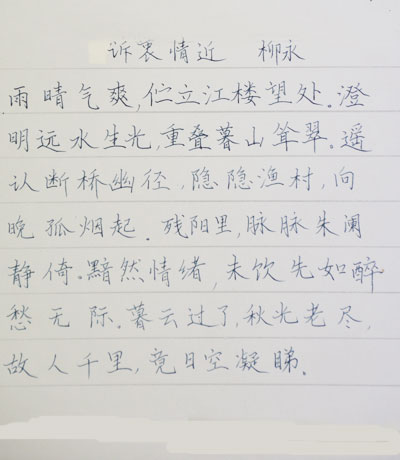 诉衷情近 柳永
雨晴气爽,伫立江楼望处.澄
明远水生光,重叠暮山耸翠.遥
认断桥幽径,隐隐渔村,向
晚孤烟起.残阳里,脉脉朱阑
静倚.黯然情绪,未饮先如醉
愁无际.暮云过了,秋光老尽,
故人千里,竟日空凝睇.